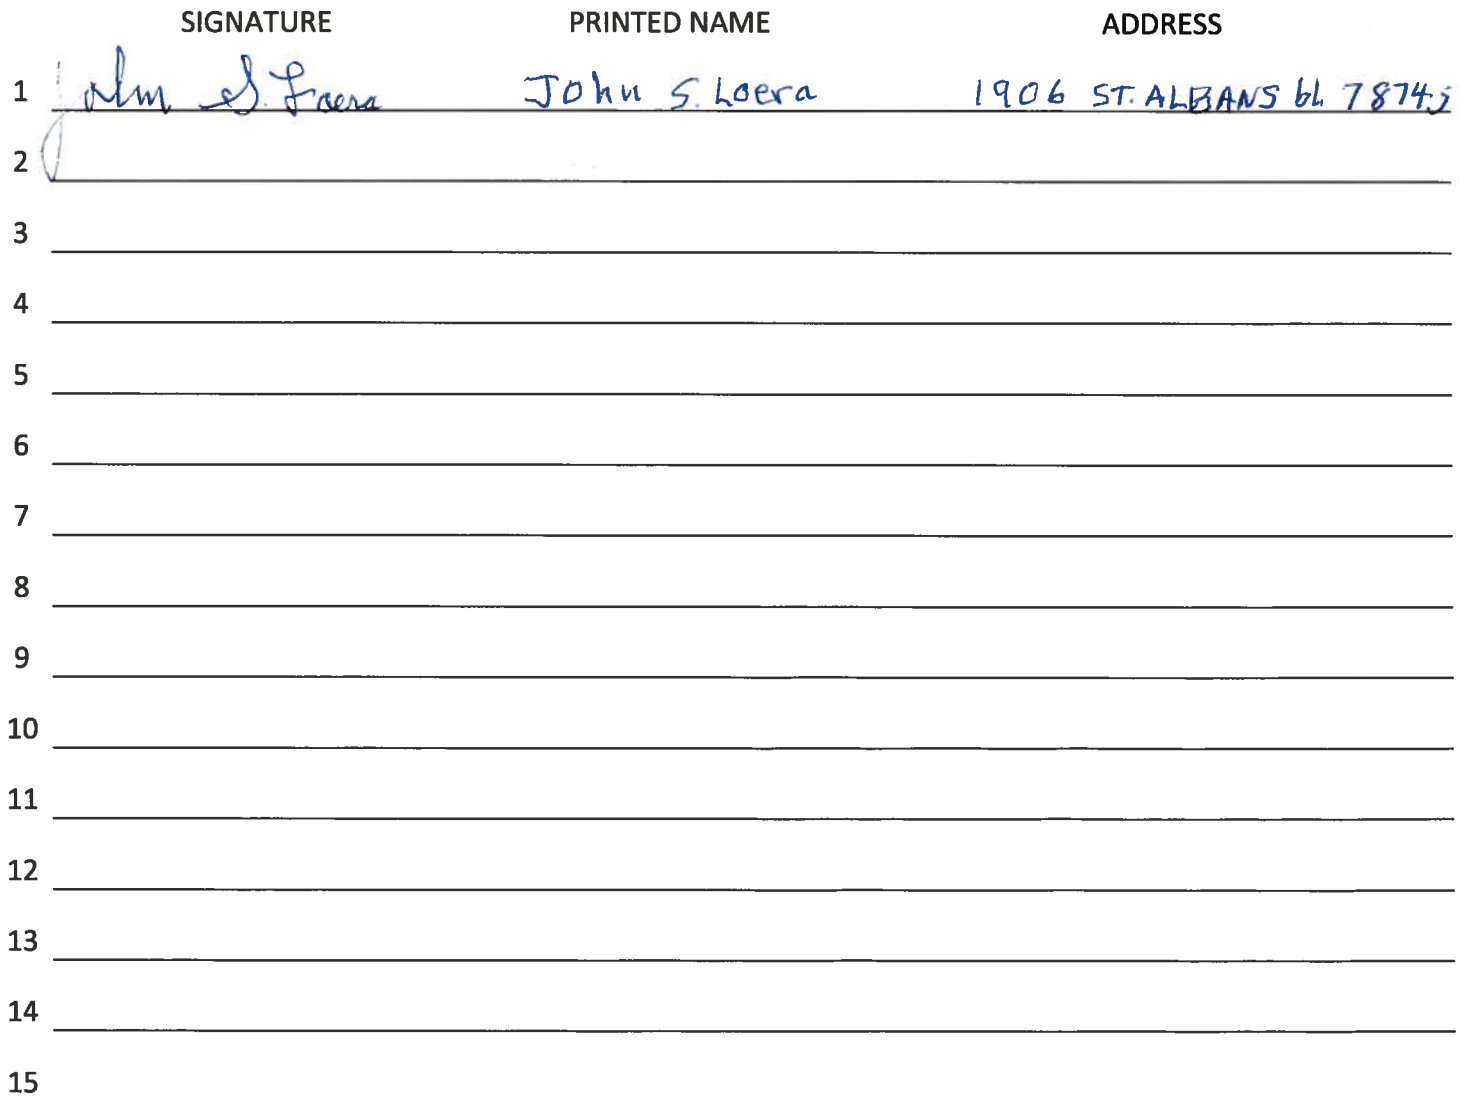 SIGNATURE PRINTED NAME ADDRESS
1 John S. Loera John S. Loera 1906 ST. ALBANS bL 78745
2
3
4
5
6
7
8
9
10
11
12
13
14
15